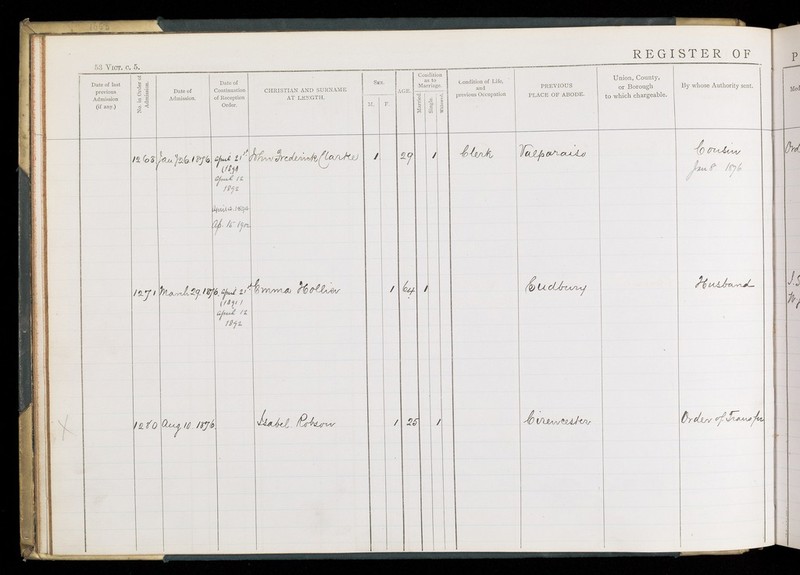 REGISTER OF
53 VICT. c. 5.
Date of last previous Admission (if any.)
No. in Order of Admission.
Date of Admission.
Date of Continuation of Reception Order.
CHRISTIAN AND SURNAME AT LENGTH.
Sex.
M.
F.
AGE.
Condition as to Marriage.
Married.
Single.
Widowed.
Condition of Life, and previous Occupation
PREVIOUS PLACE OF ABODE.
Union, County, or Borough to which chargeable.
By whose Authority sent.
1268 Jany 26 1876 April 21st John Frederick Clarke 1 29 1 Clerk Valparaiso Cousin
(1891
April 12
1892
Ap. 15 1902
1271 March 29 1876 April 21st Emma Hollier 1 64 1 Cudbury Husband
(1891)
April 12
1892
1280 Aug 10. 1876 Isabel Robson 1 25 1 Cirencester Order of Transfer